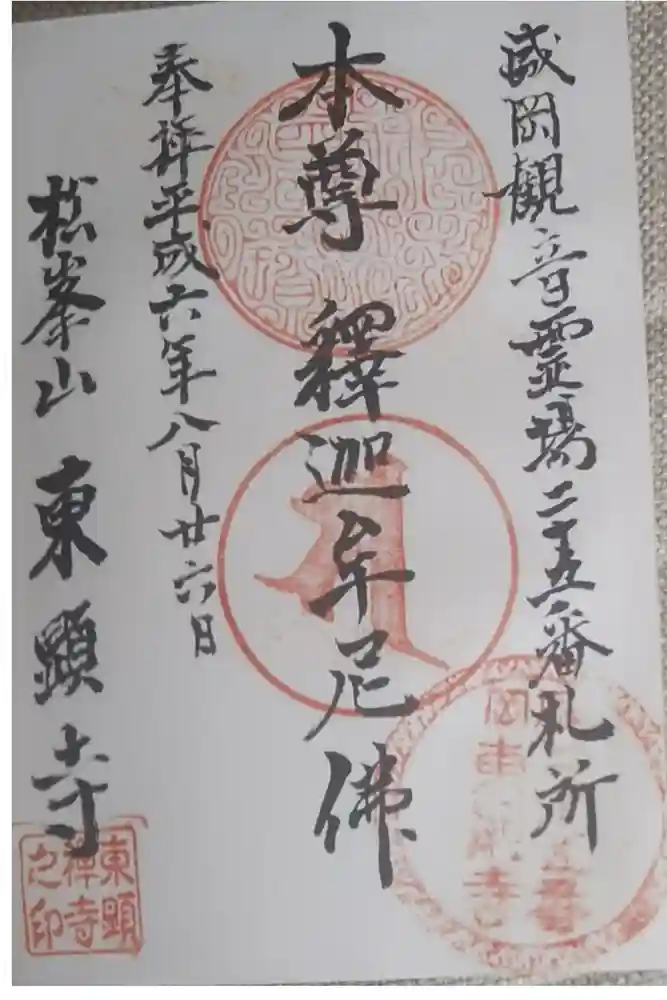 盛岡観音霊場二十五番札所
本尊 釋迦牟尼佛
奉拝平成六年八月廿六日
松峯山 東顯寺
東顯
禅寺
之印